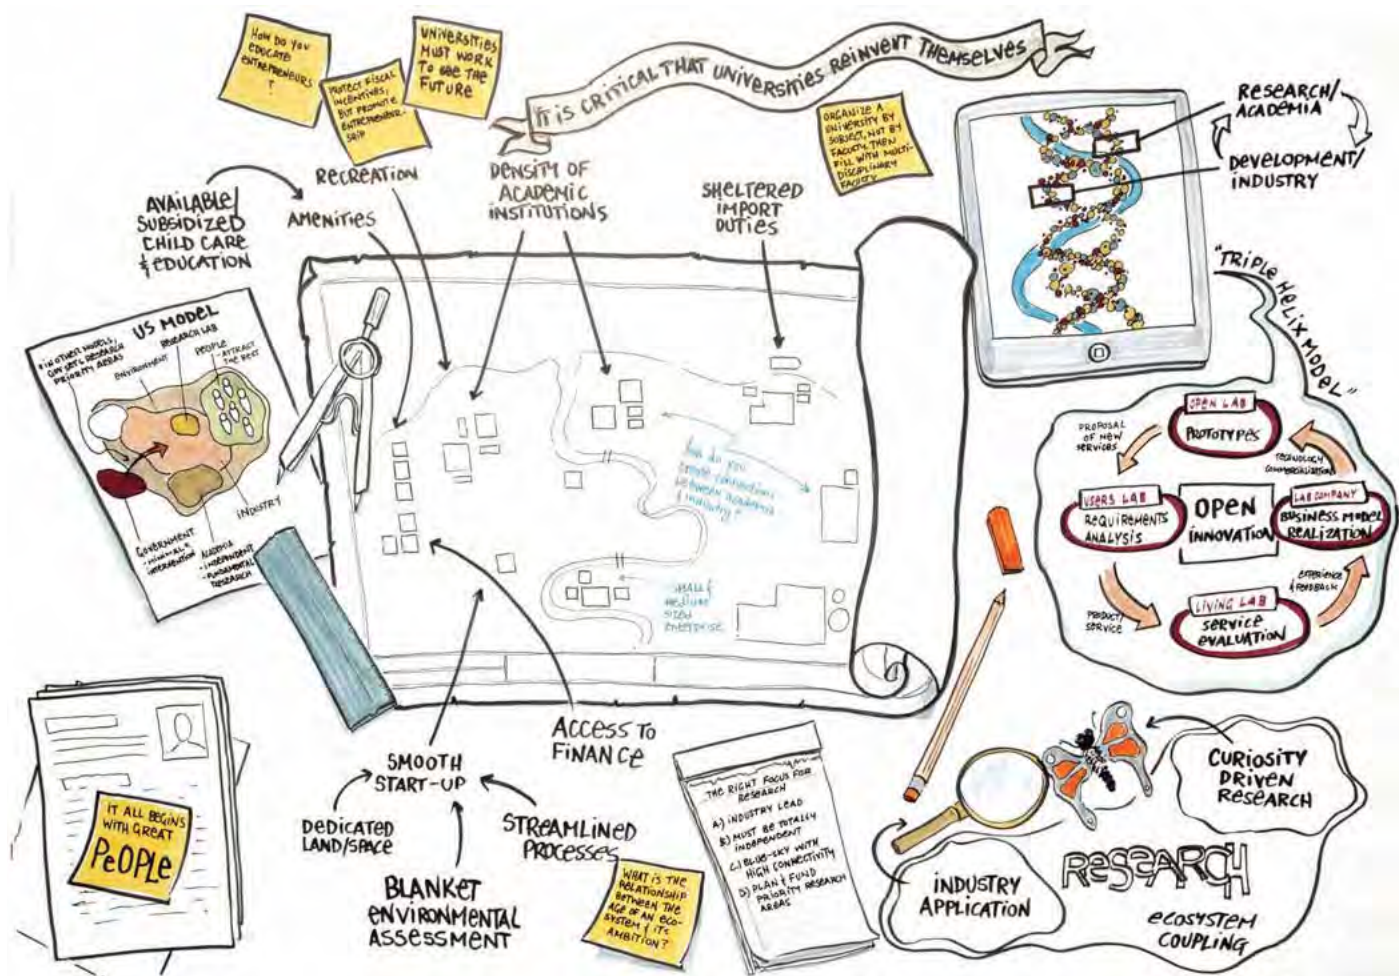 HOW DO YOU
EDUCATE
ENTREPRENEURS
?
PROTECT FISCAL
INCENTIVES,
BUT PROMOTE
ENTREPRENEUR-
SHIP
UNIVERSITIES
MUST WORK
TO SEE THE
FUTURE
IT IS CRITICAL THAT UNIVERSITIES REINVENT THEMSELVES
ORGANIZE A
UNIVERSITY BY
SUBJECT, NOT BY
FACULTY. THEN
FILL WITH MULTI-
DISCIPLINARY
FACULTY
RESEARCH/
ACADEMIA
DEVELOPMENT/
INDUSTRY
AVAILABLE/
SUBSIDIZED
CHILD CARE
& EDUCATION
RECREATION
AMENITIES
DENSITY OF
ACADEMIC
INSTITUTIONS
SHELTERED
IMPORT
DUTIES
"TRIPLE HELIX MODEL"
US MODEL
IN OTHER MODELS,
GOV SETS RESEARCH
PRIORITY AREAS
ENVIRONMENT
RESEARCH LAB
PEOPLE
- ATTRACT
THE BEST
INDUSTRY
GOVERNMENT
- MINIMAL
INTERVENTION
ACADEMIA
- INDEPENDENT
- FUNDAMENTAL
RESEARCH
How do you
create connections
between academia
& industry?
SMALL &
medium
sized
enterprise
OPEN LAB
PROTOTYPES
PROPOSAL
OF NEW
SERVICES
TECHNOLOGY
COMMERCIALIZATION
USERS LAB
REQUIREMENTS
ANALYSIS
OPEN
INNOVATION
LAB COMPANY
BUSINESS MODEL
REALIZATION
PRODUCT/
SERVICE
LIVING LAB
SERVICE
EVALUATION
EXPERIENCE
& FEEDBACK
IT ALL BEGINS
WITH GREAT
PEOPLE
SMOOTH
START-UP
ACCESS TO
FINANCE
DEDICATED
LAND/SPACE
STREAMLINED
PROCESSES
BLANKET
ENVIRONMENTAL
ASSESSMENT
WHAT IS THE
RELATIONSHIP
BETWEEN THE
AGE OF AN ECO-
SYSTEM & ITS
AMBITION?
THE RIGHT FOCUS FOR
RESEARCH
A.) INDUSTRY LEAD
B.) MUST BE TOTALLY
INDEPENDENT
C.) BLUE-SKY WITH
HIGH CONNECTIVITY
D.) PLAN & FUND
PRIORITY RESEARCH
AREAS
CURIOSITY
DRIVEN
RESEARCH
INDUSTRY
APPLICATION
RESEARCH
ECOSYSTEM
COUPLING